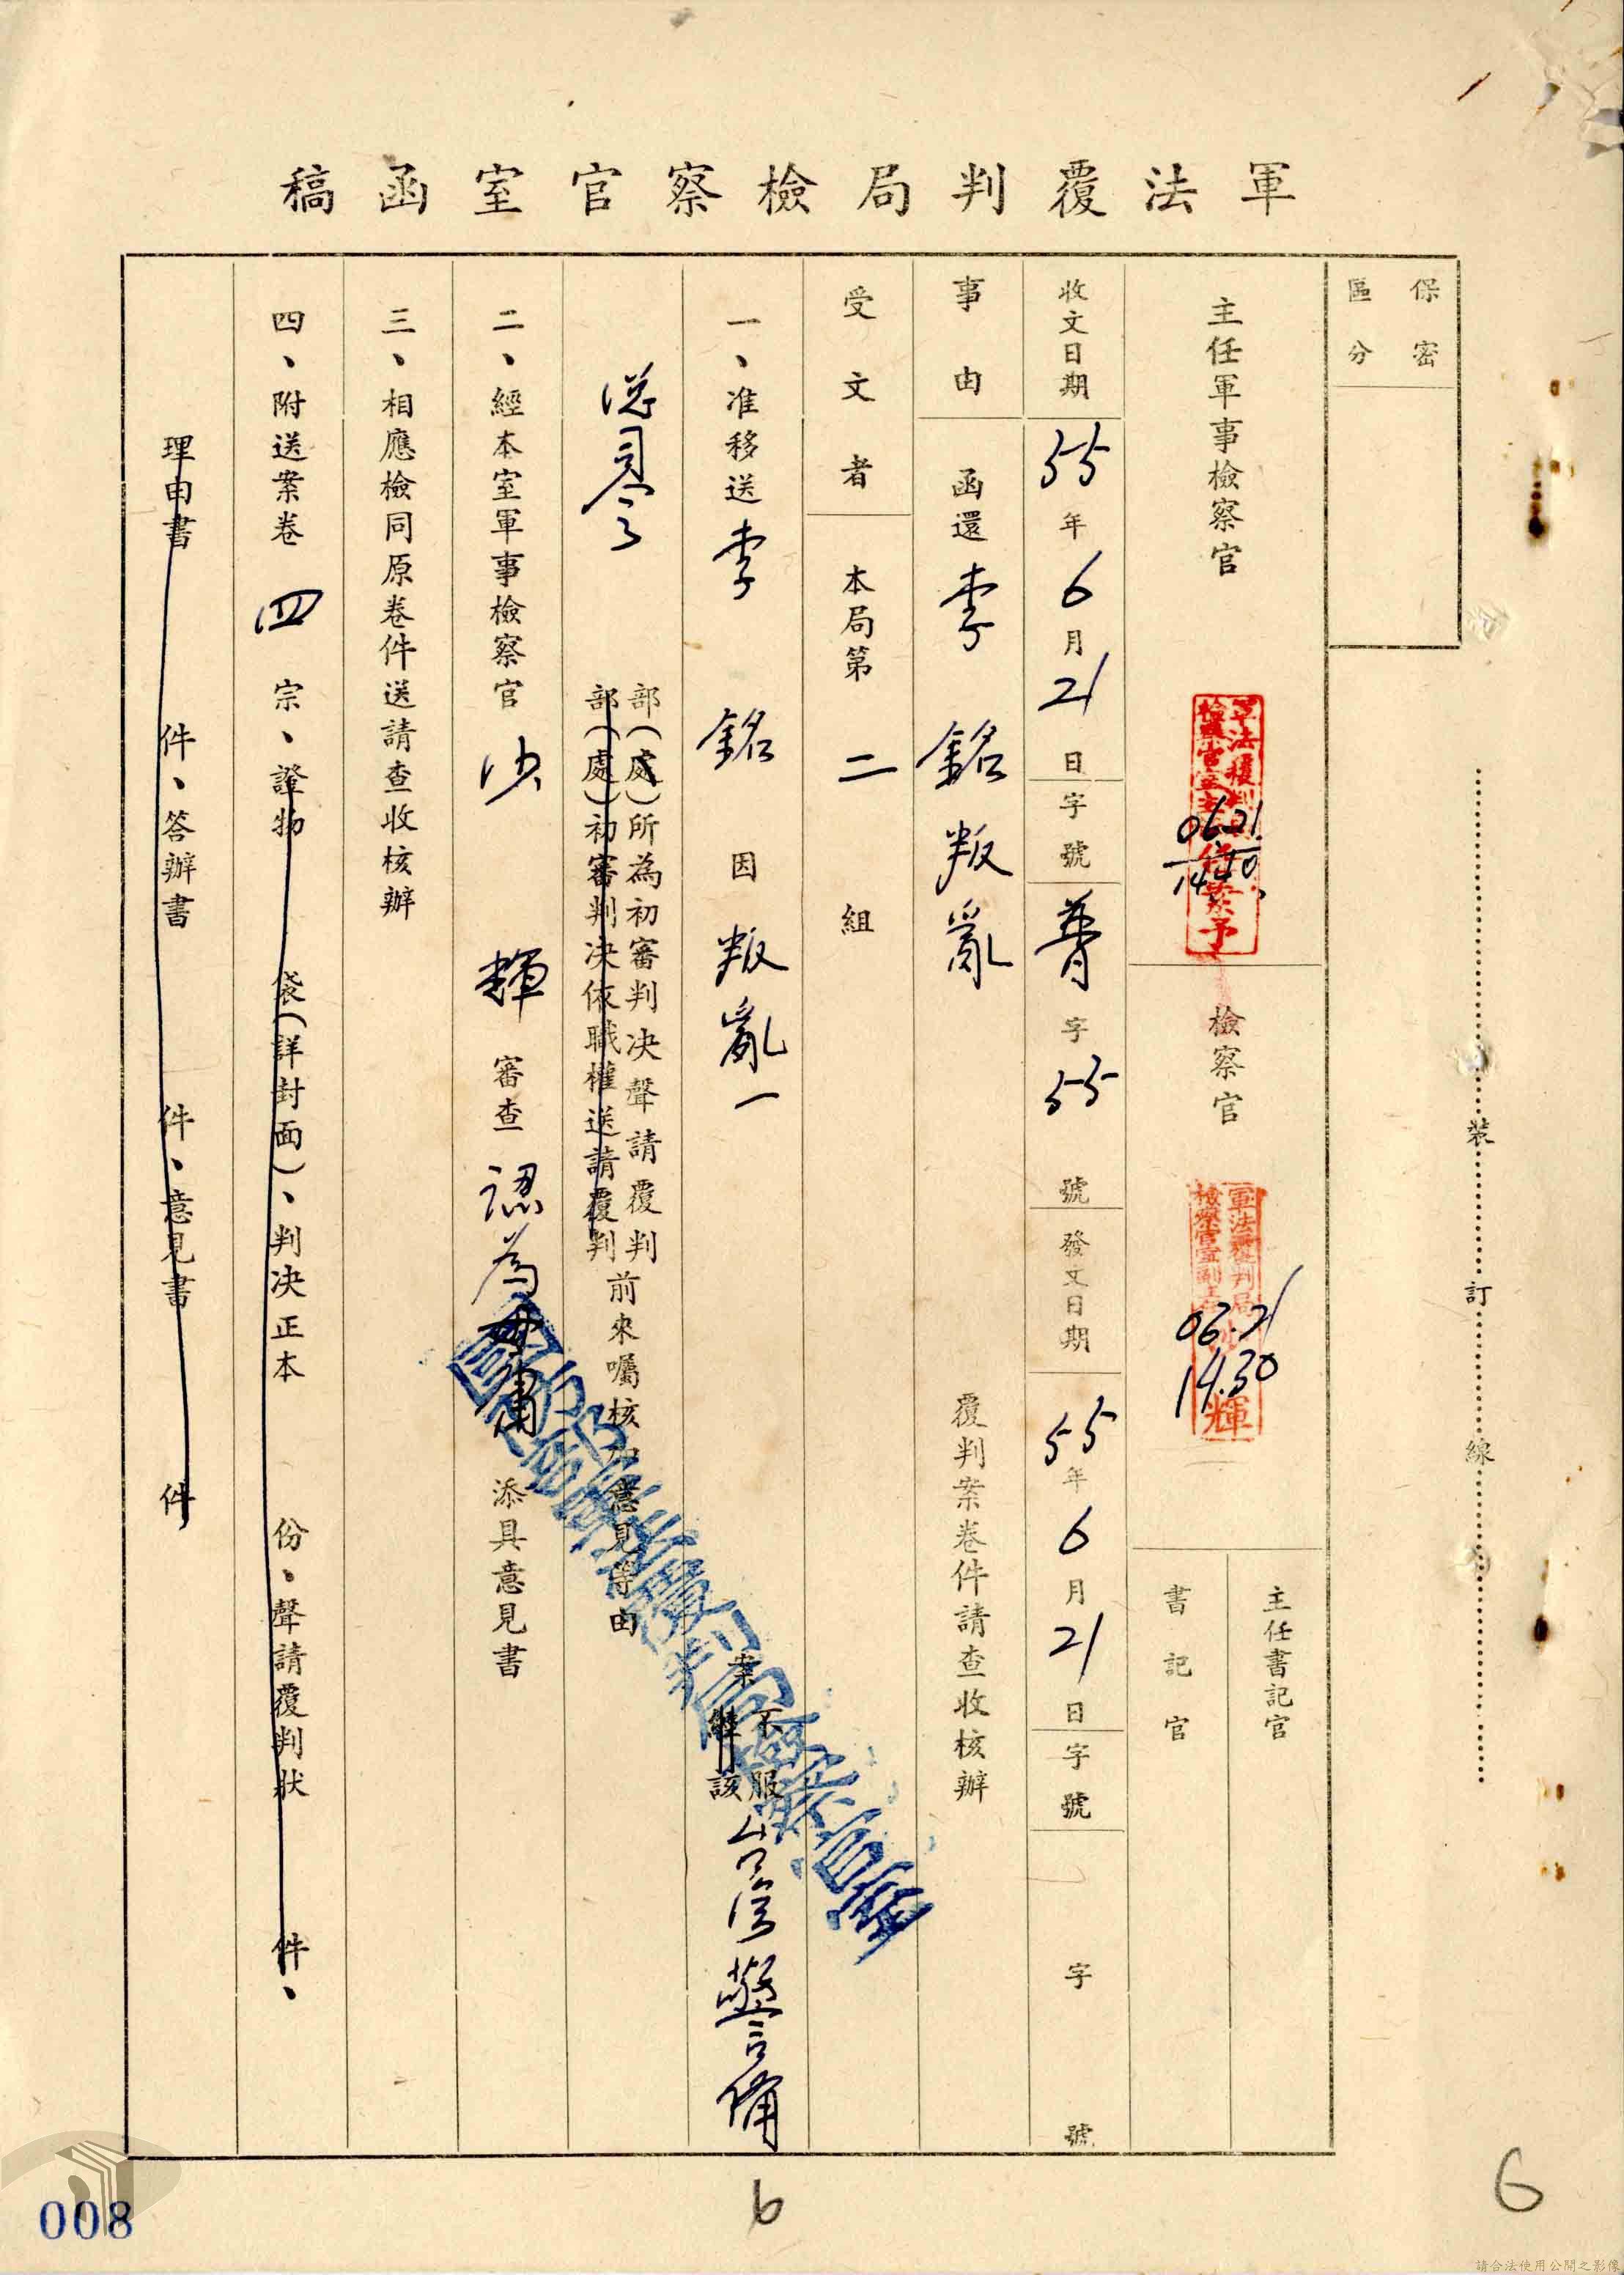 軍法覆判局檢察官室函稿
保密
區分
主任軍事檢察官
06.21
14.40
檢察官
軍法覆判局
檢察官室副主任
輝
06.21
14.30
主任書記官
書記官
收文日期 55年6月21日 字號 普字55號 發文日期 55年6月21日 字號 字 號
事由 函還李 銘叛亂 覆判案卷件請查收核辦
受文者 本局第二組
一、准移送李 銘因叛亂一案不服台灣警備
該
總司令部(處)所為初審判决聲請覆判
部(處)初審判决依職權送請覆判
前來囑核加意見等由
二、經本室軍事檢察官沙 輝審查認為毋庸添具意見書
三、相應檢同原卷件送請查收核辦
四、附送案卷四宗、證物 袋(詳封面)、判决正本 份、聲請覆判狀 件、
理由書 件、答辯書 件、意見書 件
國防部軍法覆判局檢察官室
裝
訂
線
6
6
008
請合法使用公開之影像